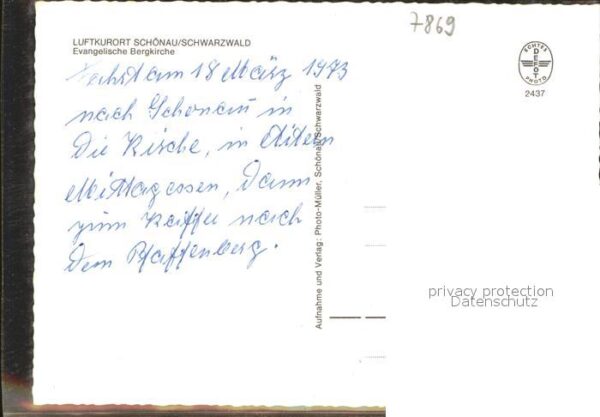 7869
LUFTKURORT SCHÖNAU/SCHWARZWALD
Evangelische Bergkirche
Fahrt am 18 März 1973
nach Schönau in
die Kirche, in Aitern
Mittagessen, dann
zum Kaffee nach
dem Pfaffenberg.
Aufnahme und Verlag: Photo-Müller, Schönau/Schwarzwald
ECHTES
DEFOT
PHOTO
2437
privacy protection
Datenschutz